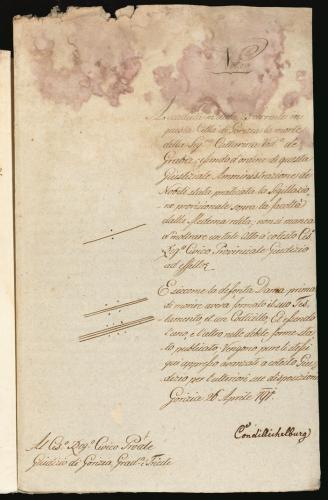 Nota
in
questa Città di Gorizia la morte
della Sig.ra Catterina Ved.a de
Grabiz, essendo d'ordine di questa
Giustiziale Amministrazione de
Nobili stata praticata la Sigillazio,,
ne provisionale sopra la facoltà
dalla Medema relita, non si manca
d'inoltrare un tale atto a cotesto Ces.o
Reg.o Civico Provinciale Giudizio
ad effettu
E siccome la defonta Dama prima
di morire averà formato il suo Tes,,
tamento et un Codicillo, Ed essendo
l'uno, e l'altro nelle debite forme sta,,
to publicato, Vengono pure li stessi
qui appresso avanzati a cotesto Giu,,
dizio per l'ulteriori sue disposizioni
Gorizia 26 Aprile
Al Ces.o Reg.o Civico Prov.le
Giudizio di Gorizia, Grad.a e Trieste